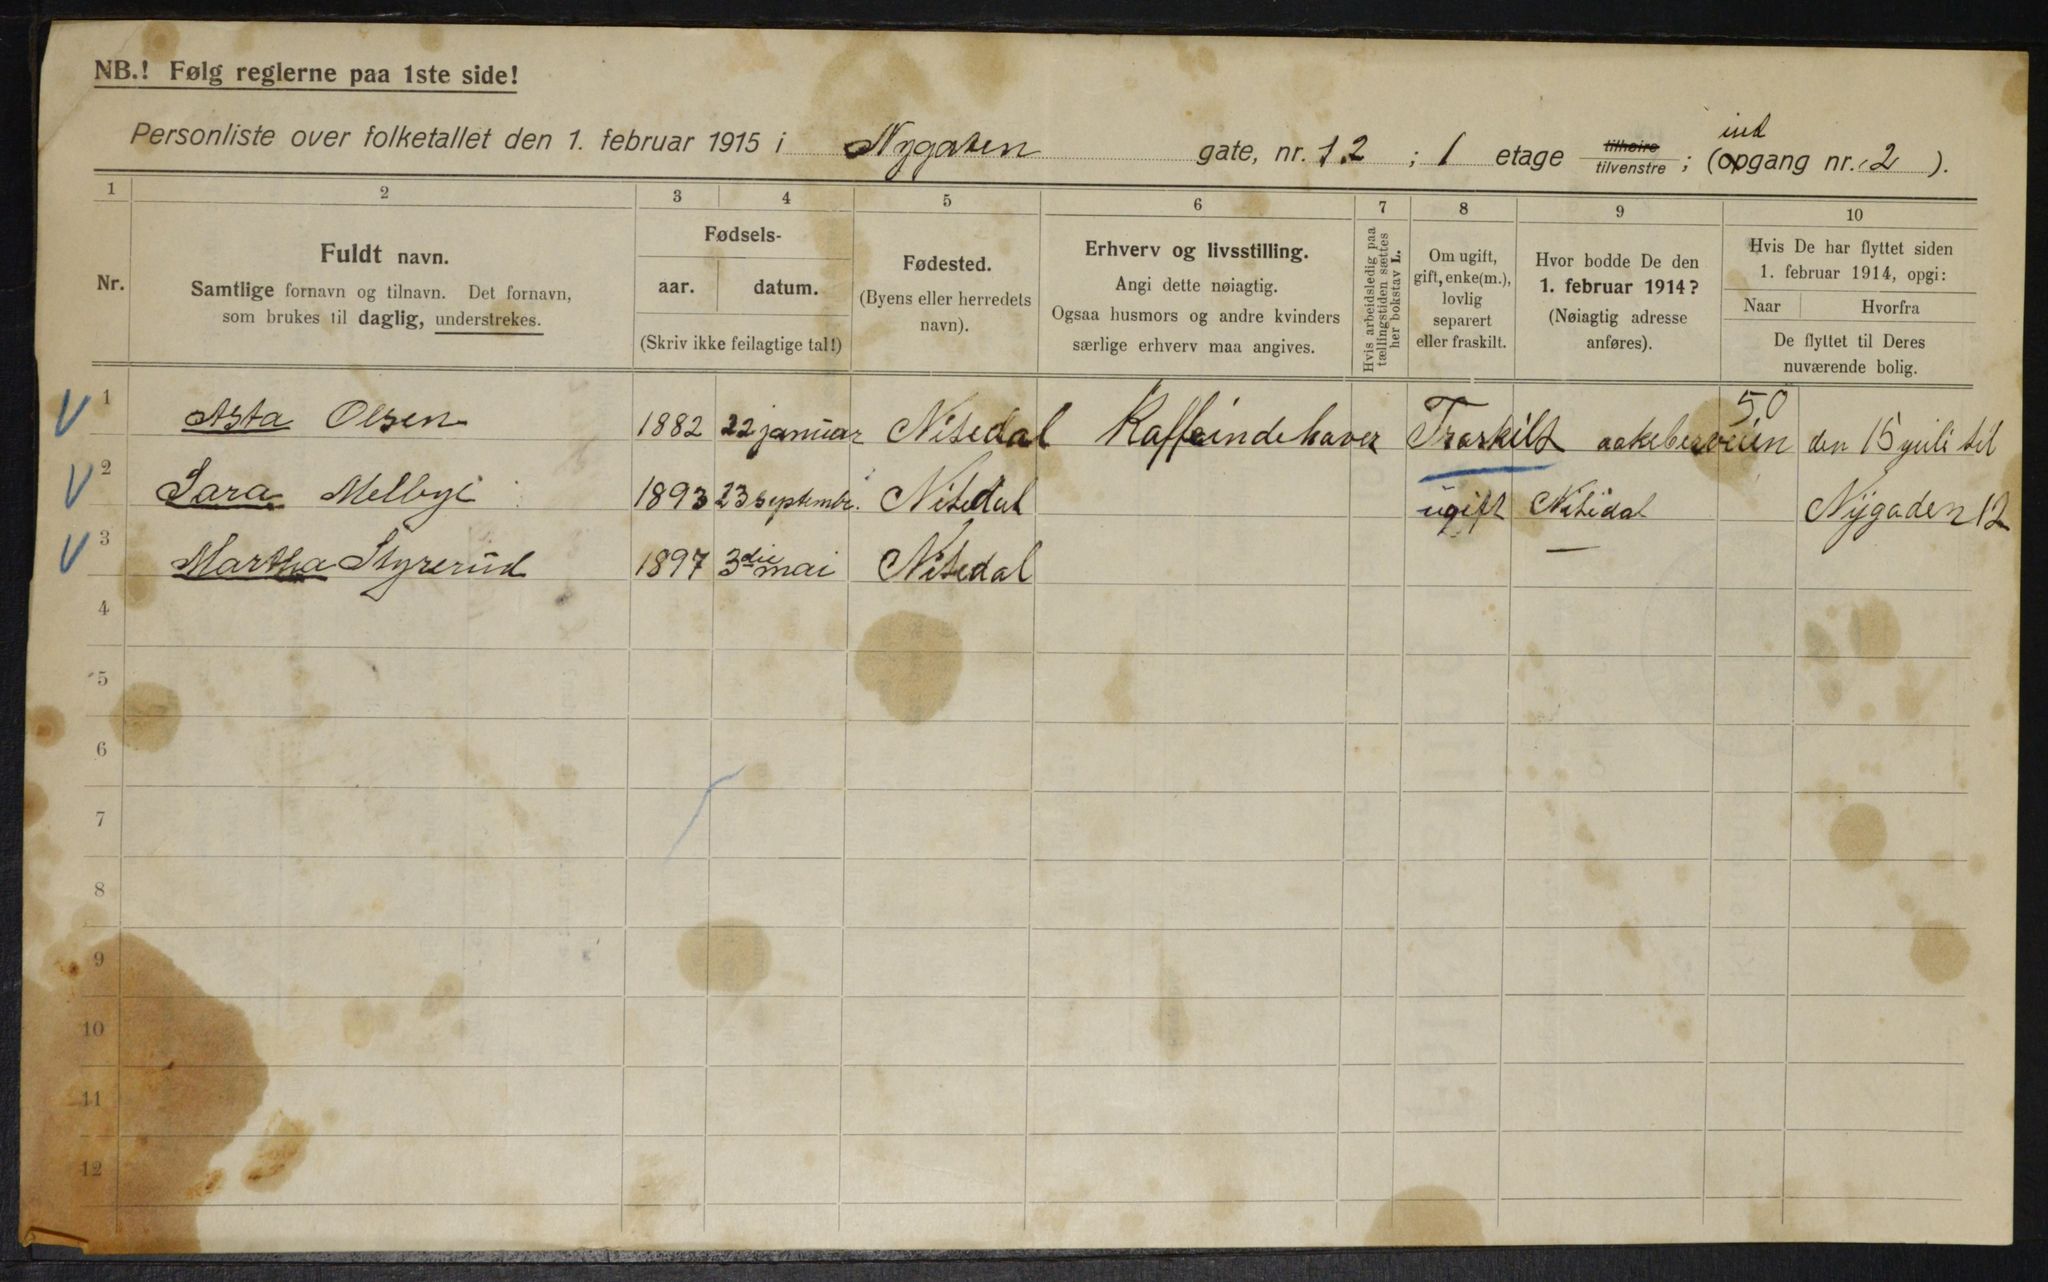 NB.! Følg reglerne paa 1ste side!
ind
Personliste over folketallet den 1. februar 1915 i Nygaten gate, nr. 12 ; 1 etage tilhøire tilvenstre ; (opgang nr. 2 ).
1 2 3 4 5 6 7 8 9 10
Nr.
Fuldt navn.
Samtlige fornavn og tilnavn. Det fornavn,
som brukes til daglig, understrekes.
Fødsels-
aar. datum.
(Skriv ikke feilagtige tal!)
Fødested.
(Byens eller herredets
navn).
Erhverv og livsstilling.
Angi dette nøiagtig.
Ogsaa husmors og andre kvinders
særlige erhverv maa angives.
Hvis arbeidsledig paa
tællingstiden sættes
her bokstav L.
Om ugift,
gift, enke(m.),
lovlig
separert
eller fraskilt.
Hvor bodde De den
1. februar 1914?
(Nøiagtig adresse
anføres).
Hvis De har flyttet siden
1. februar 1914, opgi:
Naar Hvorfra
De flyttet til Deres
nuværende bolig.
V 1 Asta Olsen 1882 22 januar Nitedal Kaffeindehaver Fraskilt aakeberveien 50 den 15 yuli til
V 2 Sara Melbye 1893 23 septmbr. Nitedal ugift Nitedal Nygaden 12
V 3 Martha Styrerud 1897 3die mai Nitedal —
4
5
6
7
8
9
10
11
12